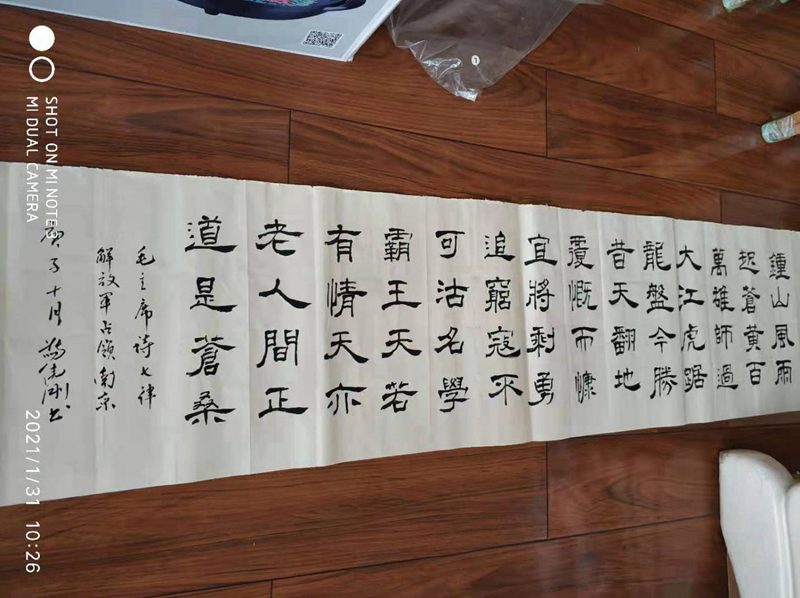 鍾山風雨
起蒼黃百
萬雄師過
大江虎踞
龍盤今勝
昔天翻地
覆慨而慷
宜將剩勇
追窮寇不
可沽名學
霸王天若
有情天亦
老人間正
道是蒼桑
毛主席詩七律
解放軍占領南京
庚子十月
SHOT ON MI NOTE
MI DUAL CAMERA
2021/1/31 10:26